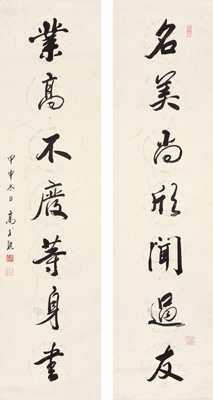 名美尚欣聞過友
業高不廢等身書
甲申冬日 高